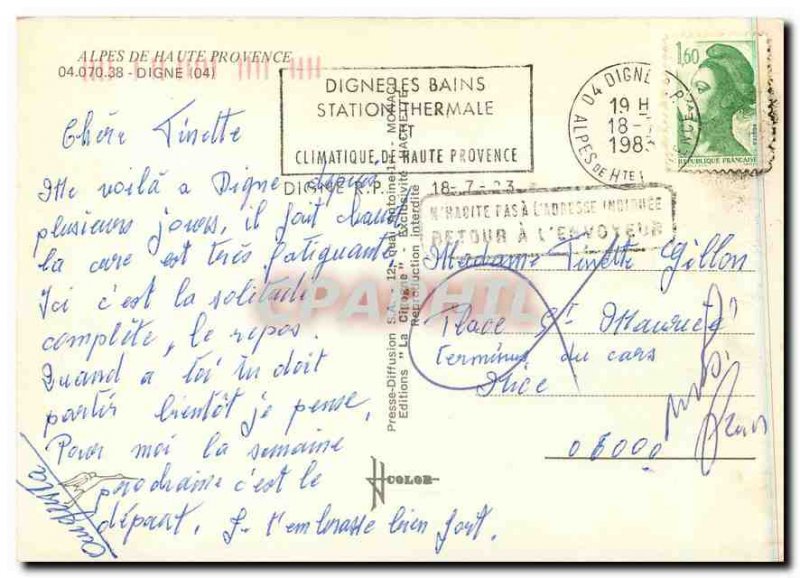 ALPES DE HAUTE PROVENCE
04.070.38 - DIGNE (04)
Chère Finette
Me voilà a Digne depuis
plusieurs jours, il fait chaud
la cure est très fatiguante
Ici c'est la solitude
complète, le repos.
Quand a toi tu doit
partir bientôt je pense,
Pour moi la semaine
prochaine c'est le
départ. Je t'embrasse bien fort.
Augusta
DIGNE LES BAINS
STATION THERMALE
ET
CLIMATIQUE DE HAUTE PROVENCE
DIGNE R.P. 18-7-83
04 DIGNE R.P.
19 H
18-
198
ALPES DE HTE PROVENCE
1,60
REPUBLIQUE FRANÇAISE
N'HABITE PAS À L'ADRESSE INDIQUÉE
RETOUR À L'ENVOYEUR
Madame Finette Gillon
Place St Maurice
Terminus du cars
Nice
06000
Presse-Diffusion S.A. - 12, Quai Antoine 1er - MONACO
Editions "La Cigogne" Exclusivité HACHETTE
Reproduction interdite
COLOR
CPARHIL